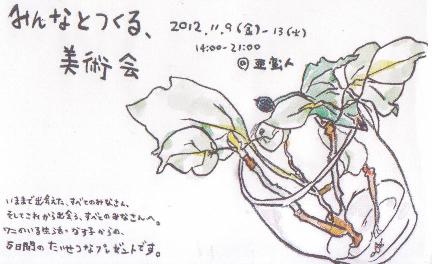 みんなとつくる、
美術会
2012.11.9(金)-13(火)
14:00-21:00
@亜人
いままで出会えた、すべてのみなさん、
そしてこれから出会う、すべてのみなさんへ。
ワニのいる生活・なす子からの、
5日間のたいせつなプレゼントです。